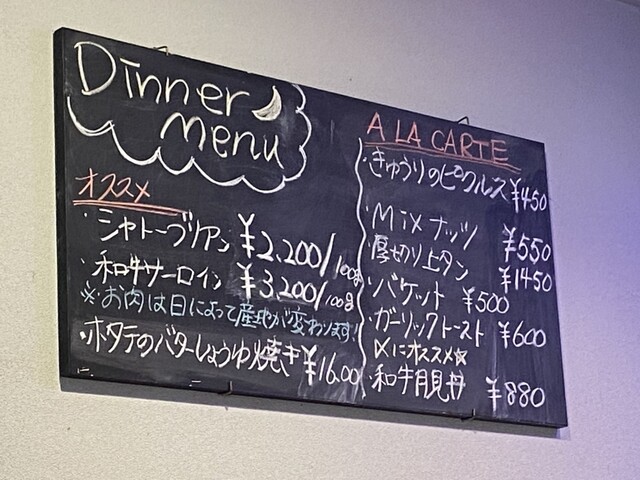 Dinner
menu
オススメ
・シャトーブリアン ¥2,200/100g
・和牛サーロイン ¥3,200/100g
※お肉は日によって産地が変わります!
・ホタテのバターしょうゆ焼き ¥16.00
A LA CARTE
・きゅうりのピクルス ¥450
・Mixナッツ ¥550
・厚切り上タン ¥1450
・バケット ¥500
・ガーリックトースト ¥600
〆にオススメ☆
・和牛月見丼 ¥880